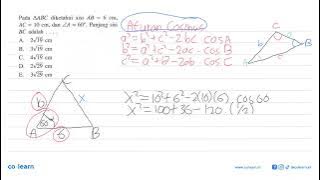 Pada ΔABC diketahui sisi AB = 6 cm,
AC = 10 cm, dan ∠A = 60°. Panjang sisi
BC adalah ....
A. 2√19 cm
B. 3√19 cm
C. 4√19 cm
D. 2√29 cm
E. 3√29 cm
Aturan Cosinus
a² = b² + c² - 2bc cos A
b² = a² + c² - 2ac · cos B
c² = a² + b² - 2ab cos C
C
b
a
A
B
x² = 10² + 6² - 2(10)(6) · cos 60
x² = 100 + 36 - 120 · (1/2)
C
b
x
60°
A
6
B
co·learn
www.colearn.id